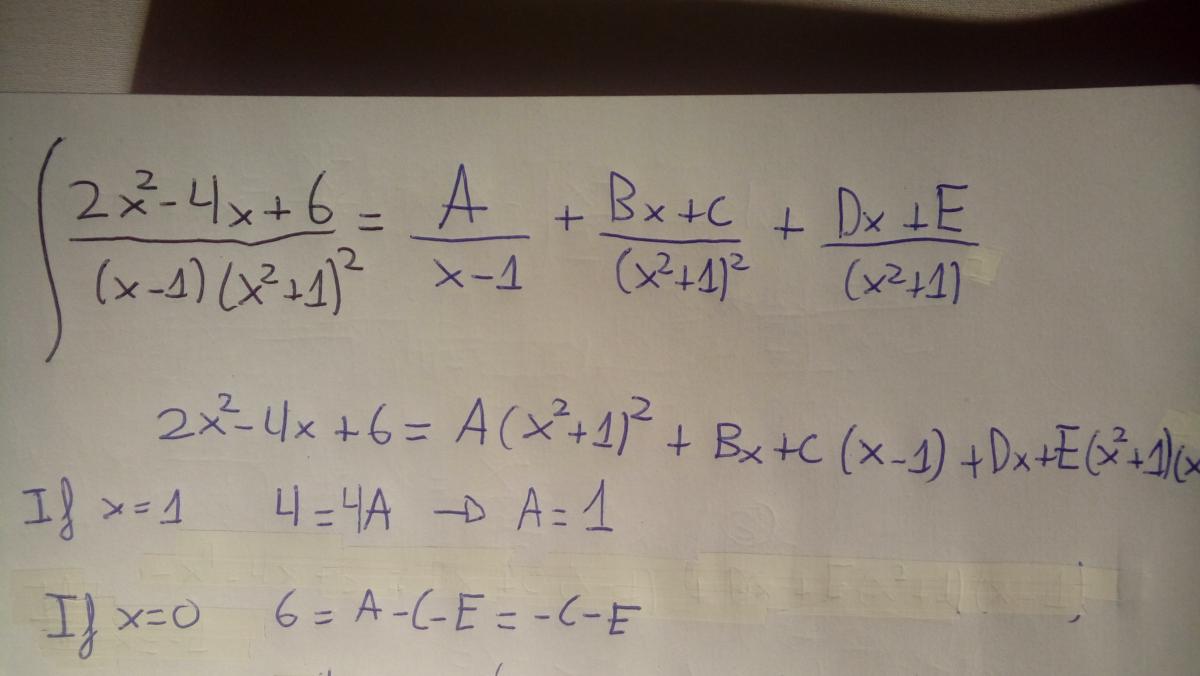 ∫ (2x²-4x+6)/((x-1)(x²+1)²) = A/(x-1) + (Bx+C)/(x²+1)² + (Dx+E)/(x²+1)
2x²-4x+6 = A(x²+1)² + Bx+C (x-1) + Dx+E(x²+1)(x
If x=1 4=4A → A=1
If x=0 6 = A-C-E = -C-E